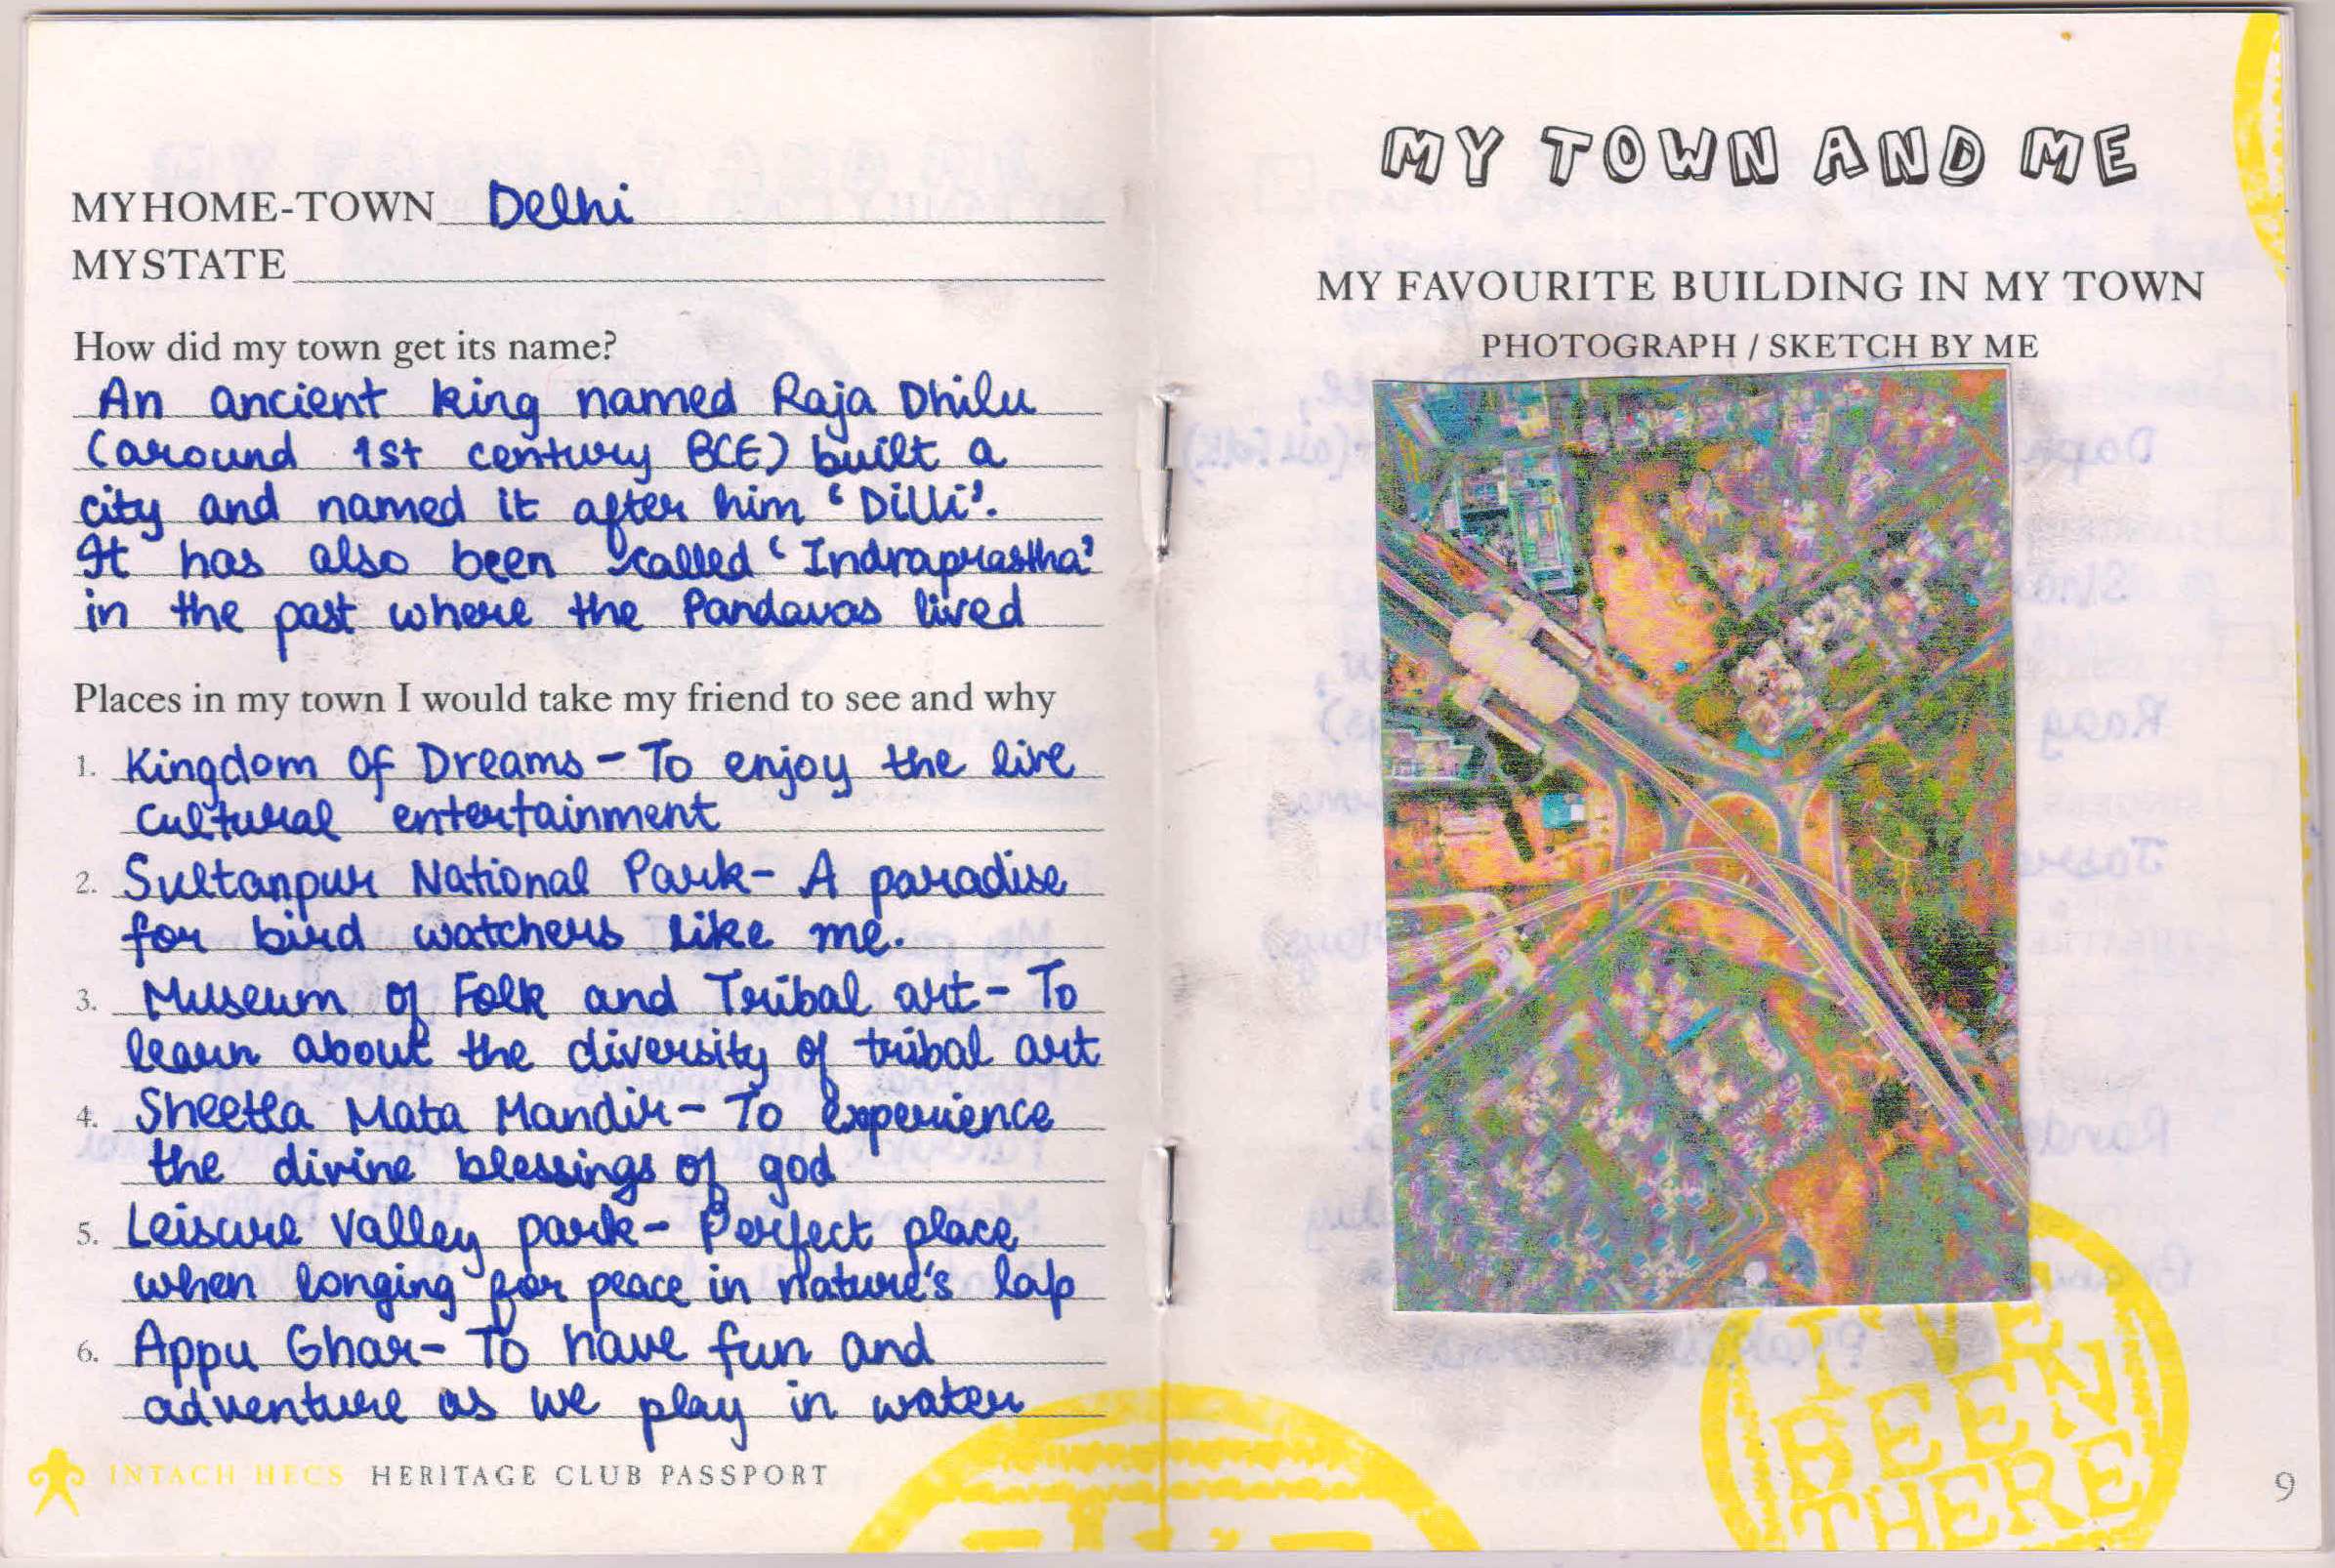 MY HOME-TOWN Delhi
MY STATE
How did my town get its name?
An ancient king named Raja Dhilu
(around 1st century BCE) built a
city and named it after him 'Dilli'.
It has also been called 'Indraprastha'
in the past where the Pandavas lived
Places in my town I would take my friend to see and why
1. Kingdom Of Dreams - To enjoy the live
cultural entertainment
2. Sultanpur National Park - A paradise
for bird watchers like me.
3. Museum of Folk and Tribal art - To
learn about the diversity of tribal art
4. Sheetla Mata Mandir - To experience
the divine blessings of god
5. Leisure Valley park - Perfect place
when longing for peace in nature's lap
6. Appu Ghar - To have fun and
adventure as we play in water
INTACH HECS HERITAGE CLUB PASSPORT
MY TOWN AND ME
MY FAVOURITE BUILDING IN MY TOWN
PHOTOGRAPH / SKETCH BY ME
I'VE
BEEN
THERE
9